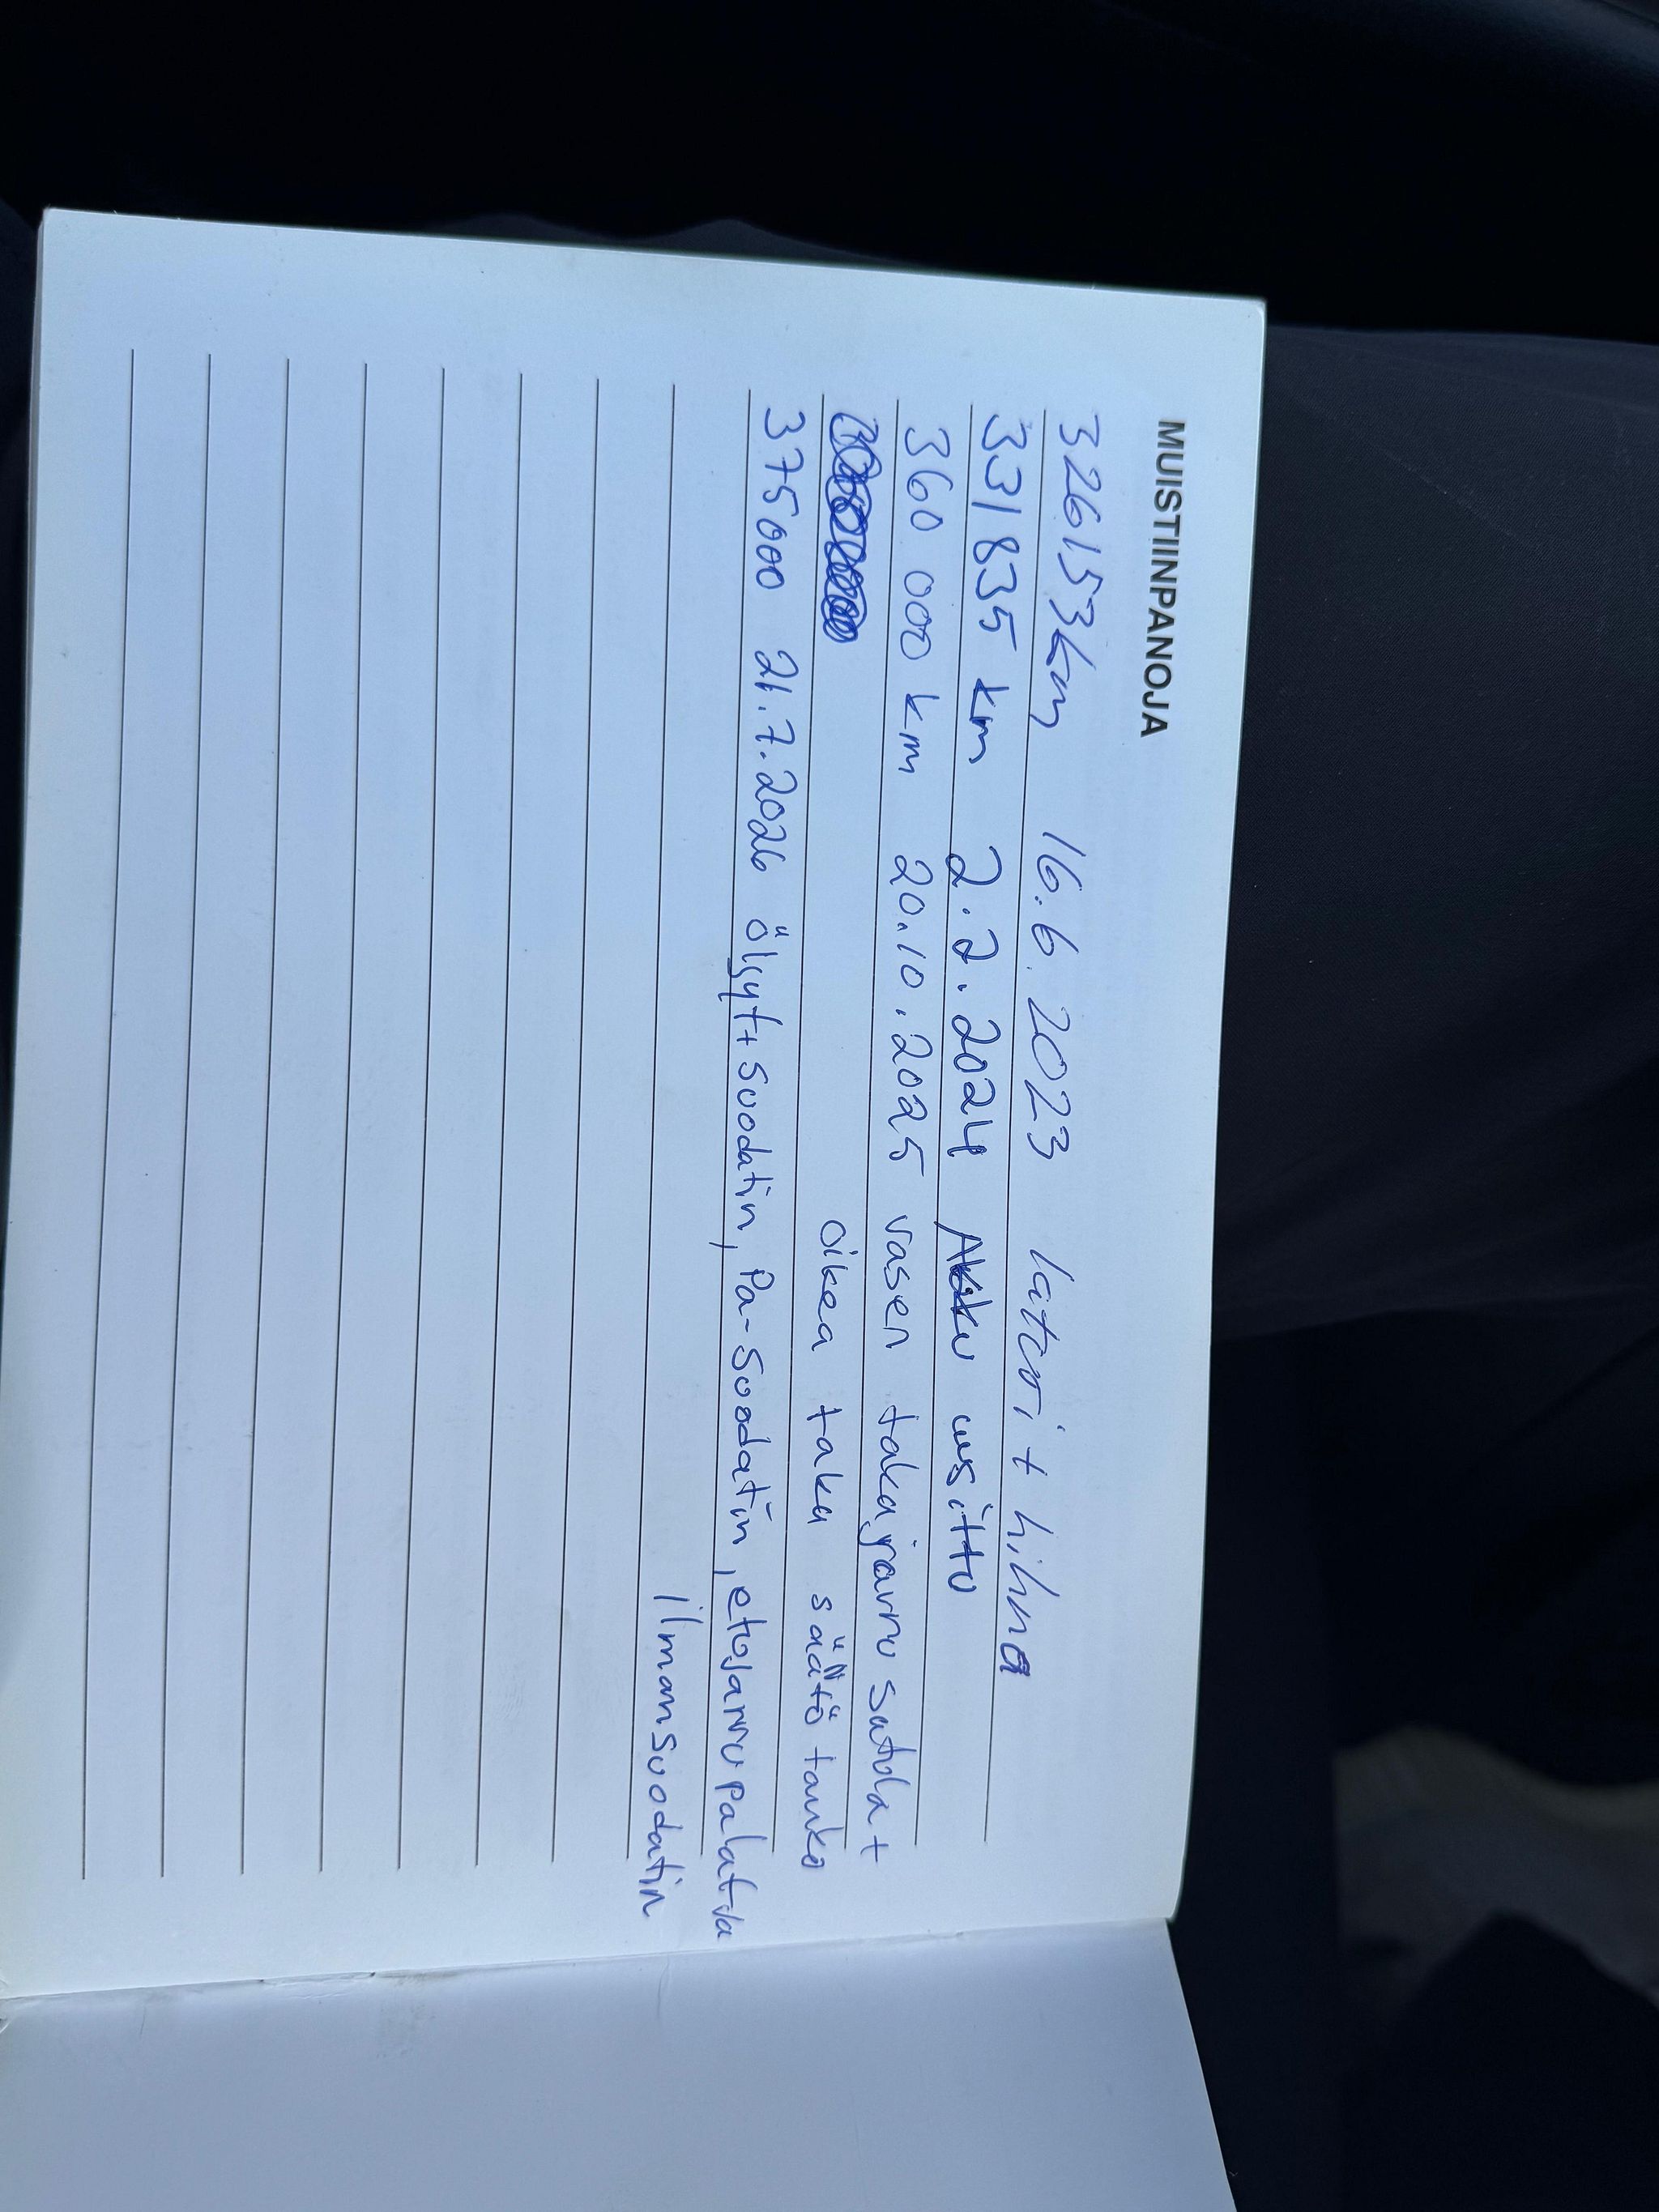 MUISTIINPANOJA
326153km 16.6.2023 laturi + hihna
331835 km 2.2.2024 Akku uusittu
360 000 km 20.10.2025 vasen takajarru satula +
oikea taka säätö tanko
375000 21.7.2026 öljyt+suodatin, Pa-suodatin, etujarrupalat ja
ilmansuodatin